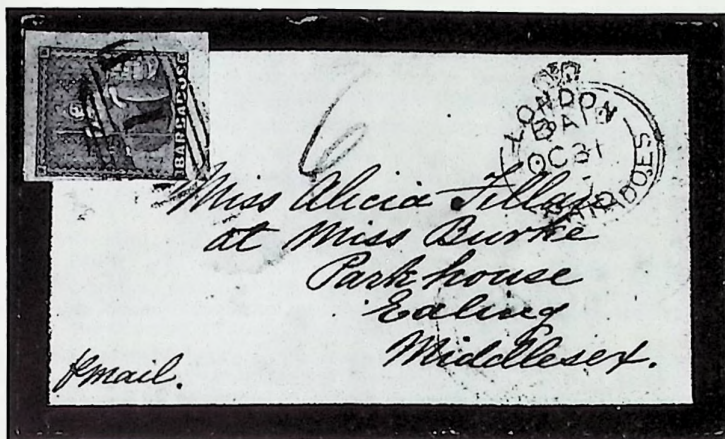 BARBADOS
6
LONDON
OC 31
BARBADOES
Miss Alicia
at Miss Burke
Park house
Ealing
Middlesex.
pmail.